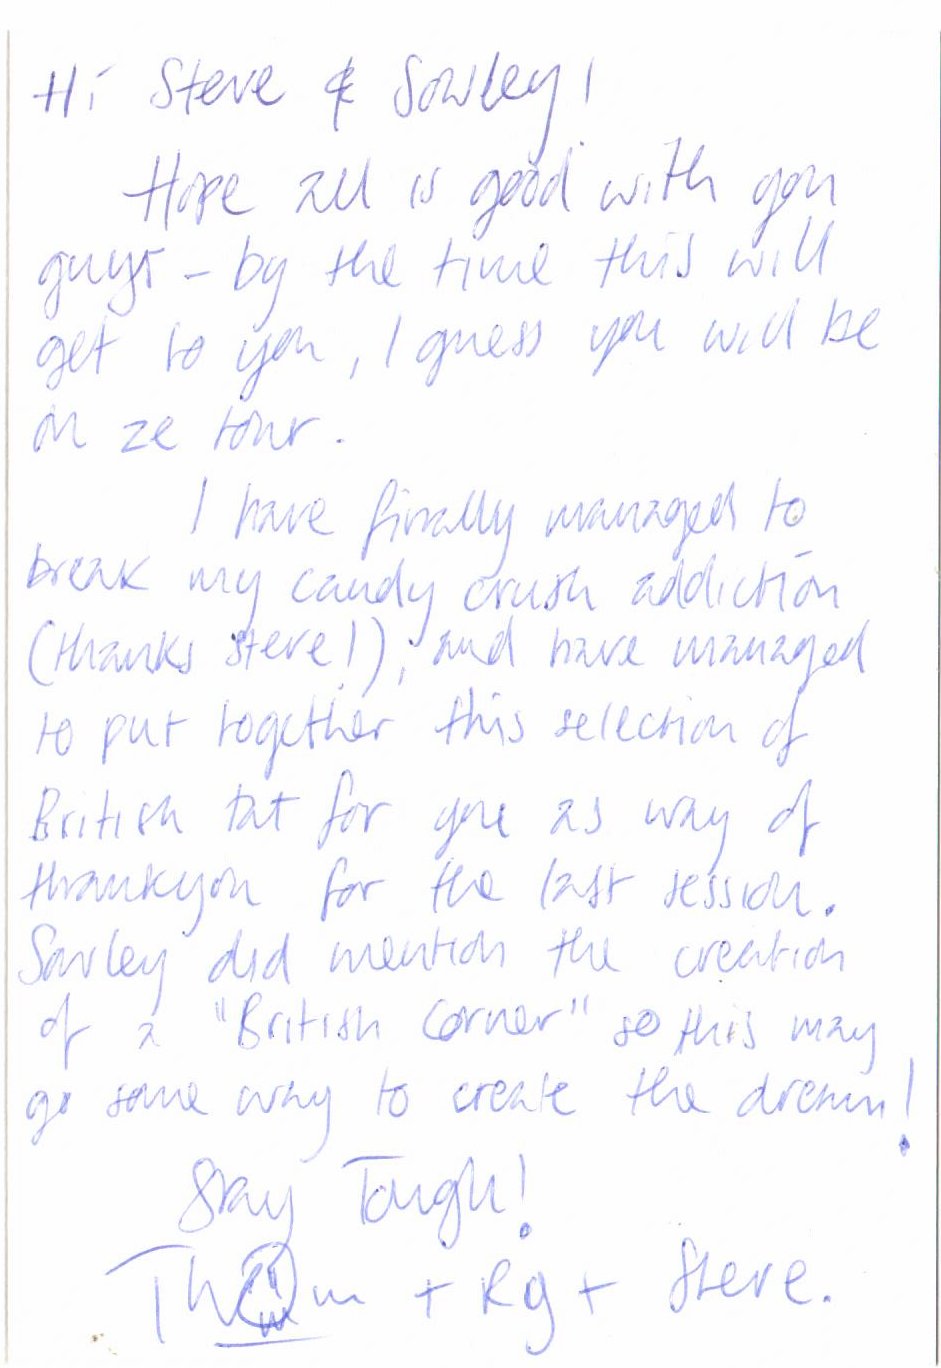 Hi Steve & Sowley!
Hope all is good with you
guys - by the time this will
get to you, I guess you will be
on ze tour.
I have finally managed to
break my candy crush addiction
(thanks Steve!), and have managed
to put together this selection of
British tat for you as way of
thankyou for the last session.
Sowley did mention the creation
of a "British Corner" so this may
go some way to create the dream!
Stay Tough!
Thom + Rg + Steve.